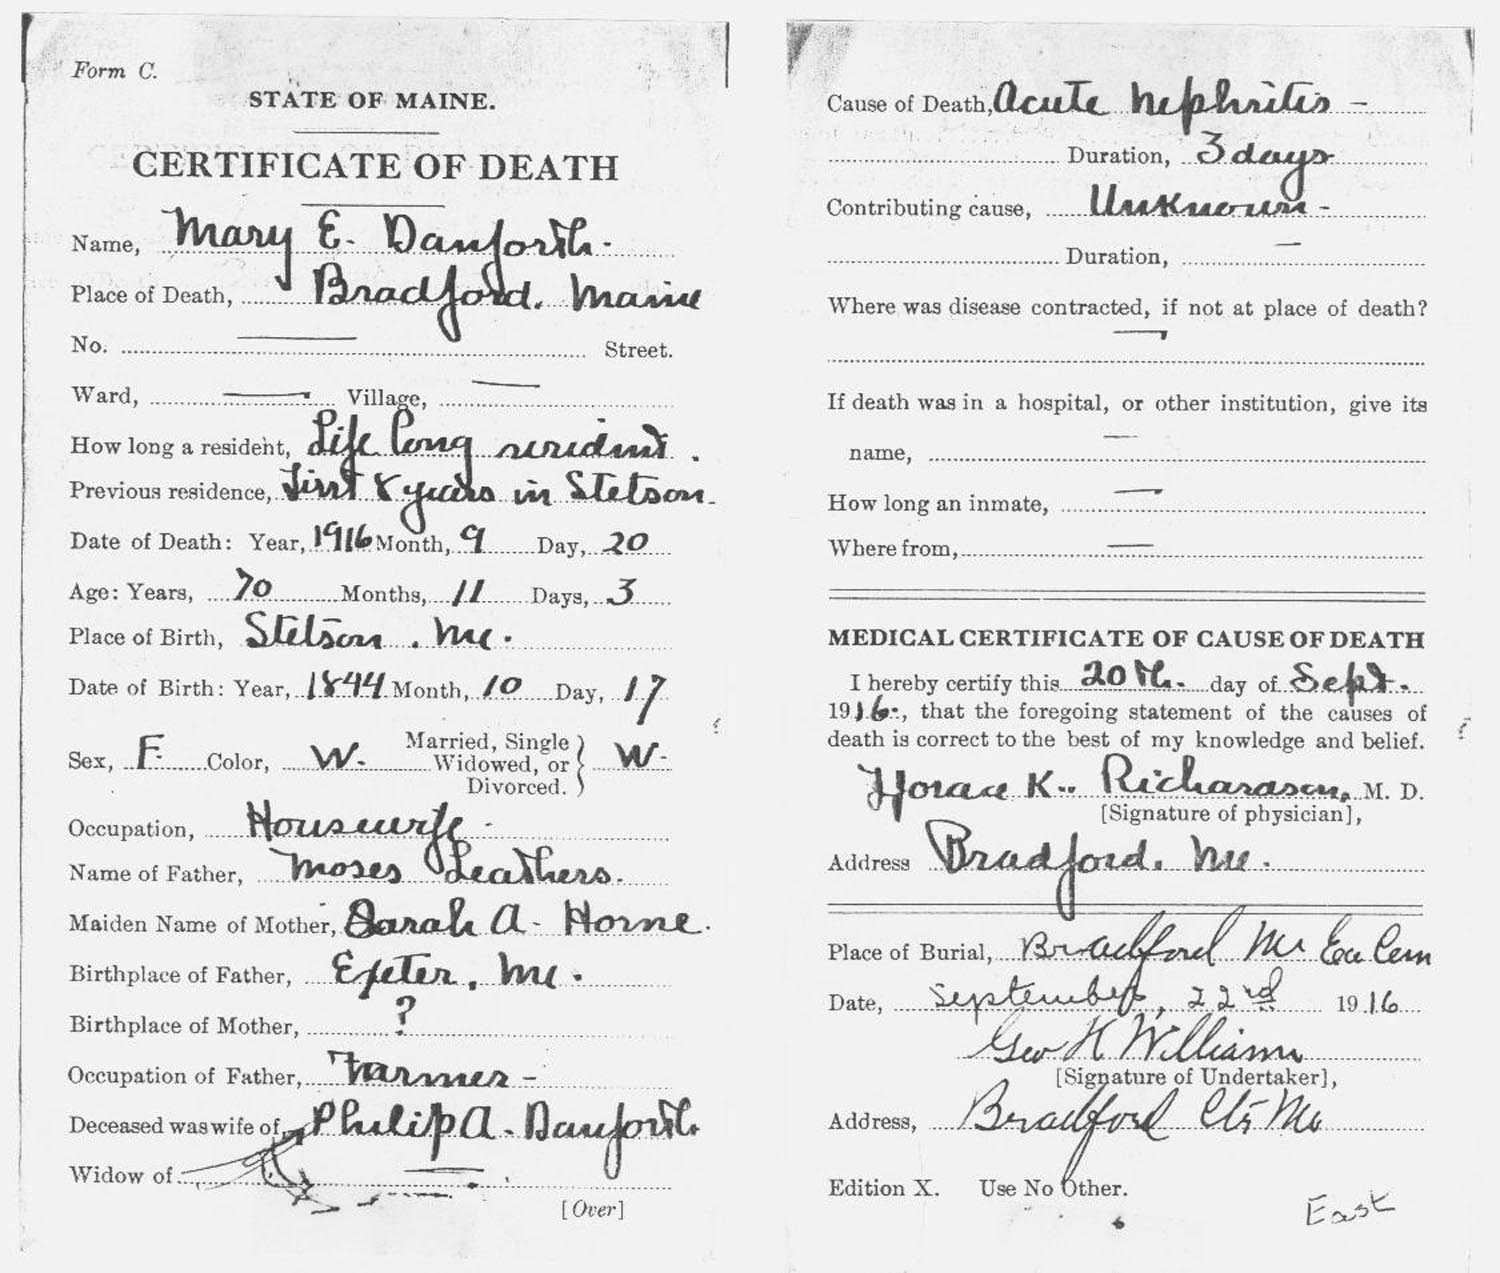 Form C.
STATE OF MAINE.
CERTIFICATE OF DEATH
Name, Mary E. Danforth.
Place of Death, Bradford. Maine
No. Street.
Ward, Village,
How long a resident, Life long resident.
Previous residence, First 8 years in Stetson.
Date of Death: Year, 1916 Month, 9 Day, 20
Age: Years, 70 Months, 11 Days, 3
Place of Birth, Stetson. Me.
Date of Birth: Year, 1844 Month, 10 Day, 17
Sex, F. Color, W. Married, Single Widowed, or Divorced. } W.
Occupation, Housewife -
Name of Father, Moses Leathers.
Maiden Name of Mother, Sarah A. Horne.
Birthplace of Father, Exeter. Me.
Birthplace of Mother, ?
Occupation of Father, Farmer -
Deceased was wife of Philip A. Danforth
Widow of
[Over]
Cause of Death, Acute Nephritis -
Duration, 3 days
Contributing cause, Unknown -
Duration, —
Where was disease contracted, if not at place of death?
—
If death was in a hospital, or other institution, give its
name, —
How long an inmate, —
Where from, —
MEDICAL CERTIFICATE OF CAUSE OF DEATH
I hereby certify this 20th. day of Sept.
1916., that the foregoing statement of the causes of
death is correct to the best of my knowledge and belief.
Horace K. Richardson, M. D.
[Signature of physician],
Address Bradford. Me.
Place of Burial, Bradford Me Cem
Date, September, 22rd 1916
Geo H Williams
[Signature of Undertaker],
Address, Bradford Ctr Me
Edition X. Use No Other.
East